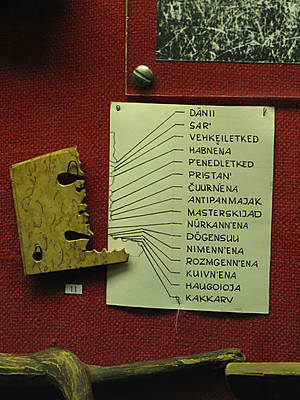 DÄNII
SAR'
VEHKEILETKED
HABNENA
P'ENEDLETKED
PRISTAN'
ČUURN'ENA
ANTIPANMAJAK
MASTERSKIJAD
NÜRKANN'ENA
DÖGENSUU
NIMENN'ENA
ROZMGENN'ENA
KUIVN'ENA
HAUGOIOJA
KAKKARV
11